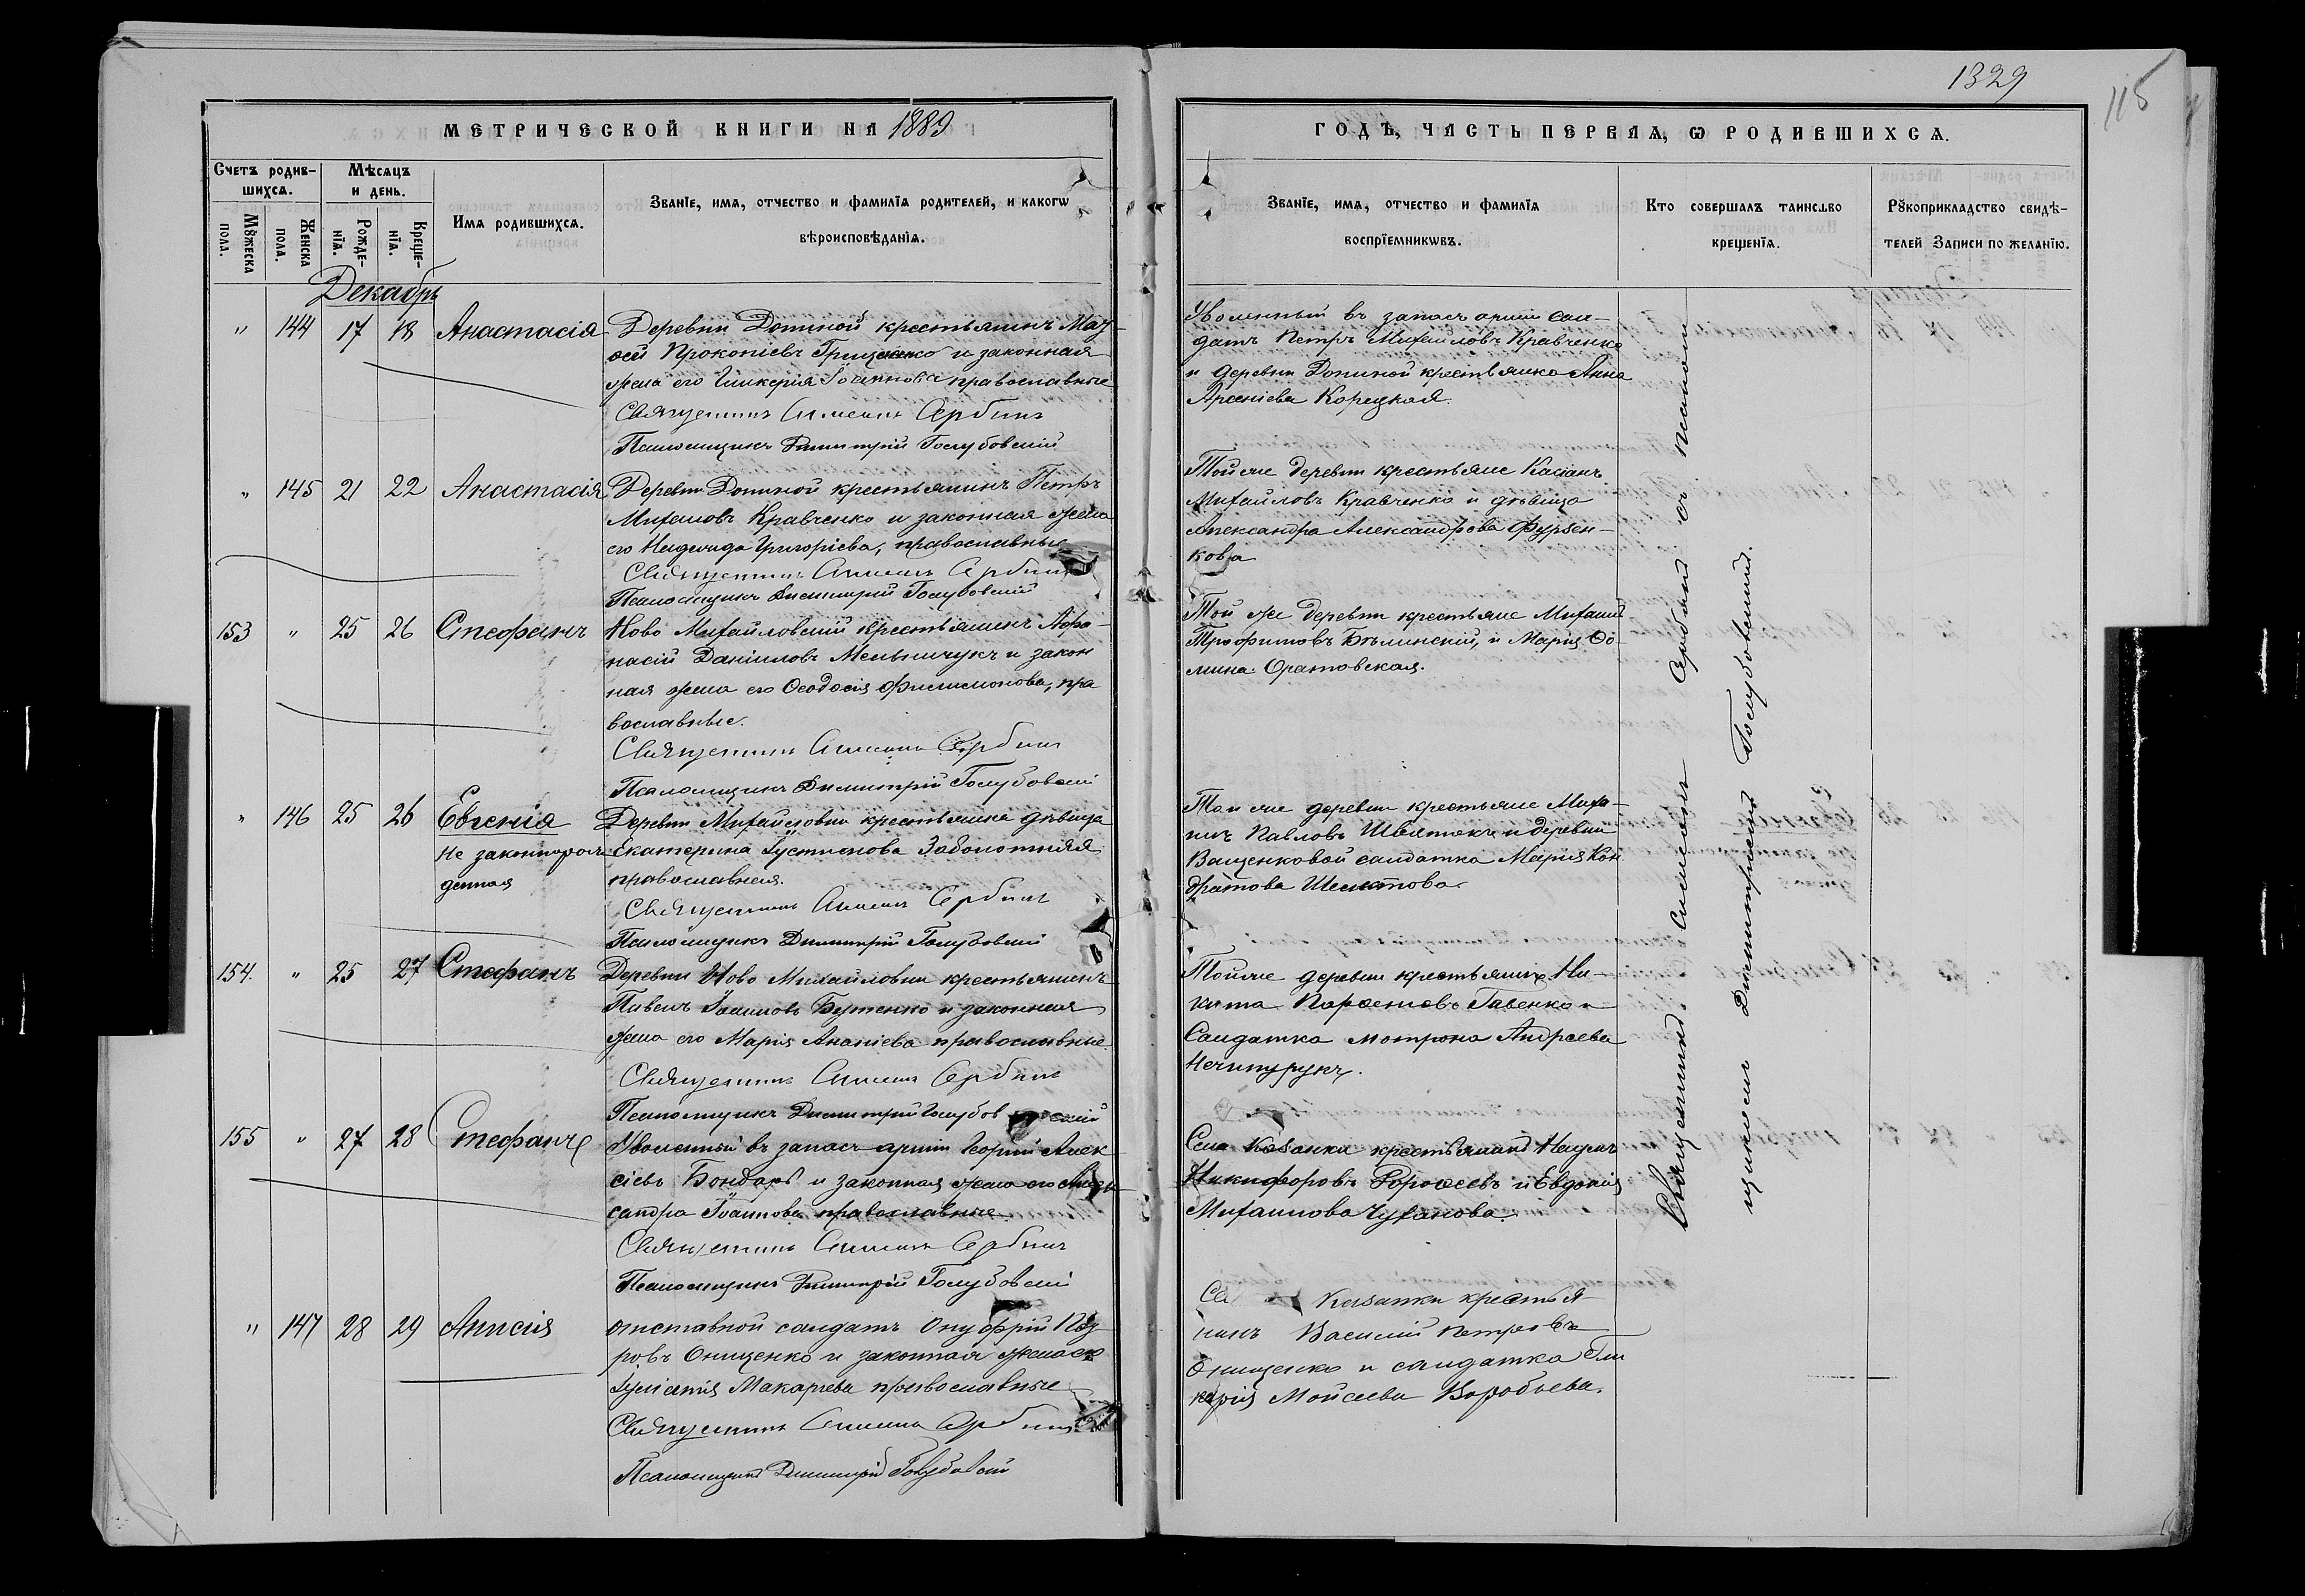 1329
115
МЕТРИЧЕСКОЙ КНИГИ НА 1889
ГОДЪ, ЧАСТЬ ПЕРВАЯ, Ѡ РОДИВШИХСЯ.
Счетъ родив-
шихся.
Мꙋжеска
пола.
Женска
пола.
Мѣсяцъ
и день.
Рожде-
нїя.
Креще-
нїя.
Имя родившихся.
Званїе, имя, отчество и фамилїя родителей, и какогѡ
вѣроисповѣданїя.
Званїе, имя, отчество и фамилїя
воспрїемникѡвъ.
Кто совершалъ таинство
крещенїя.
Рꙋкоприкладство свидѣ-
телей записи по желанїю.
Декабрь
" 144 17 18 Анастасія
Деревни Дониной крестьянинъ
Прокопіевъ Грищенко и законная
жена его Гликерія Іоаннова православные
Священникъ Симеонъ Сербинъ
Псаломщикъ Димитрій Голубовскій
Уволенный въ запасъ арміи сол-
датъ Петръ Михайловъ Кравченко
и деревни Дониной крестьянка Анна
Арсеніева Корецкая.
" 145 21 22 Анастасія
Деревни Дониной крестьянинъ Петръ
Михаиловъ Кравченко и законная жена
его Надежда Григоріева, православные
Священникъ Симеонъ Сербинъ
Псаломщикъ Димитрій Голубовскій
Той же деревни крестьяне Касіанъ
Михайловъ Кравченко и дѣвица
Александра Александрова Фурсен-
кова
153 " 25 26 Стефанъ
Ново Михайловскій крестьянинъ Афа-
насій Даніиловъ Мельничукъ и закон
ная жена его Ѳеодосія Филимонова, пра
вославные.
Священникъ Симеонъ Сербинъ
Псаломщикъ Димитрій Голубовскій
Той же деревни крестьяне Михаилъ
Трофимовъ Бѣлинскій, и Марія Ѳо-
мина Оратовская.
" 146 25 26 Евгенія
не законнорож
денная
Деревни Михайловки крестьянка дѣвица
Екатерина Іустинова Заболотняя
православная.
Священникъ Симеонъ Сербинъ
Псаломщикъ Димитрій Голубовскій
Той же деревни крестьяне
Павловъ и деревни
Ващенковой солдатка Марія Кон
дратова
154. " 25 27 Стефанъ
Деревни Ново Михайловки крестьянинъ
Павелъ Іоанновъ Бутенко и законная
жена его Марія Ананіева православные.
Священникъ Симеонъ Сербинъ
Псаломщикъ Димитрій Голубовскій
Той же деревни крестьянинъ Ни-
кита и
Солдатка Мотрона Андреева
Нечипурукъ.
155 " 27 28 Стефанъ
Уволенный въ запасъ арміи Георгій Алек
сіевъ Бондарь и законная жена его Алек
сандра Іоаннова православные.
Священникъ Симеонъ Сербинъ
Псаломщикъ Димитрій Голубовскій
Села Казанки крестьянинъ Наумъ
Никифоровъ Дорофеевъ и Евдокія
Михаилова Чуханова.
" 147 28 29 Анисія
отставной солдатъ Онуфрій
ровъ Онищенко и законная жена его
Іуліанія Макаріева православные
Священникъ Симеонъ Сербинъ
Псаломщикъ Димитрій Голубовскій
Казанки крестья-
нинъ Василій Петровъ
Онищенко и солдатка Гли
керія Мойсеева Воробьева.
Священникъ Симеонъ Сербинъ съ псалом
щикомъ Димитріемъ Голубовскимъ.